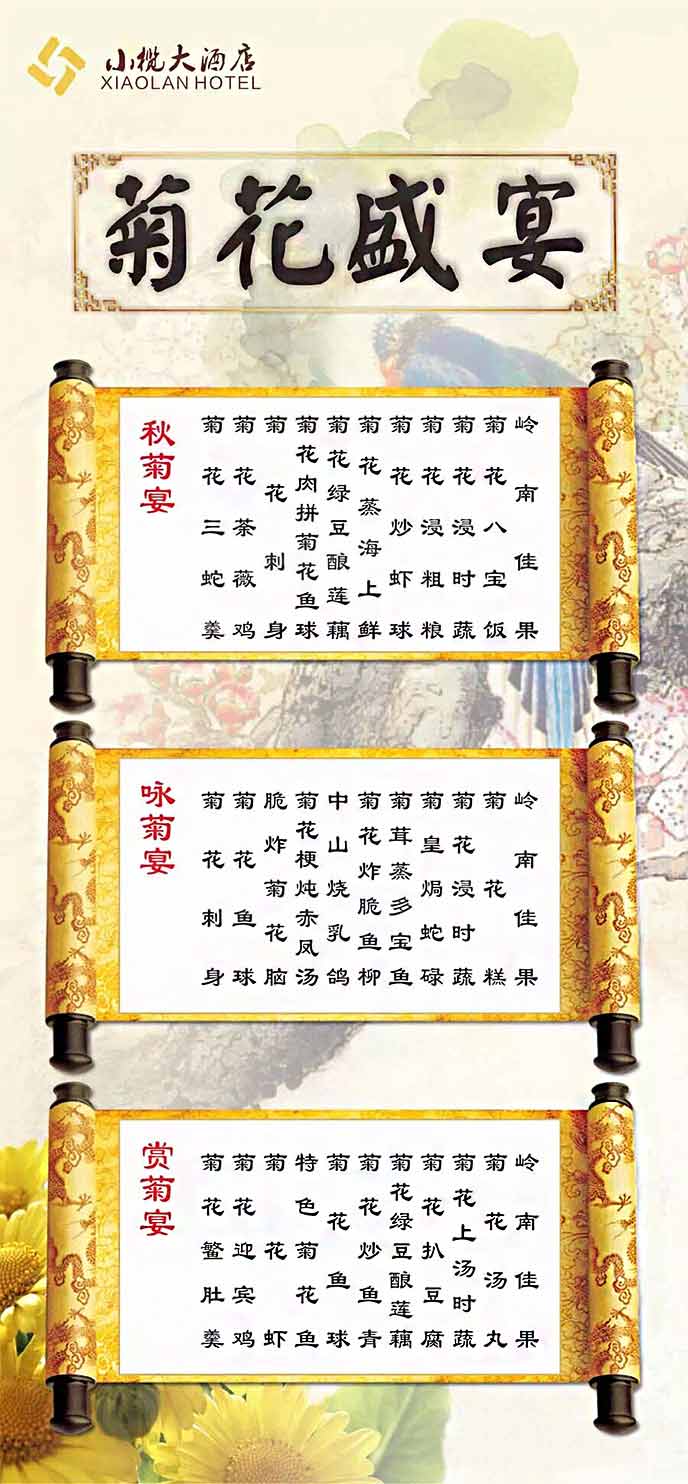 小榄大酒店
XIAOLAN HOTEL
菊花盛宴
秋菊宴
菊花三蛇羹
菊花茶薇鸡
菊花刺身
菊花肉拼菊花鱼球
菊花绿豆酿莲藕
菊花蒸海上鲜
菊花炒虾球
菊花浸粗粮
菊花浸时蔬
菊花八宝饭
岭南佳果
咏菊宴
菊花刺身
菊花鱼球
脆炸菊花脑
菊花梗炖赤凤汤
中山烧乳鸽
菊花炸脆鱼柳
菊茸蒸多宝鱼
菊皇焗蛇碌
菊花浸时蔬
菊花糕
岭南佳果
赏菊宴
菊花鳘肚羹
菊花迎宾鸡
菊花虾
特色菊花鱼
菊花鱼球
菊花炒鱼青
菊花绿豆酿莲藕
菊花扒豆腐
菊花上汤时蔬
菊花汤丸
岭南佳果